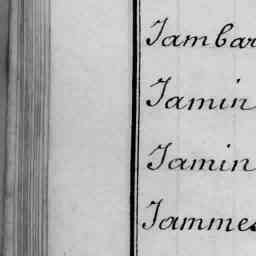 Jambar
Jamin
Jamin
Jammes